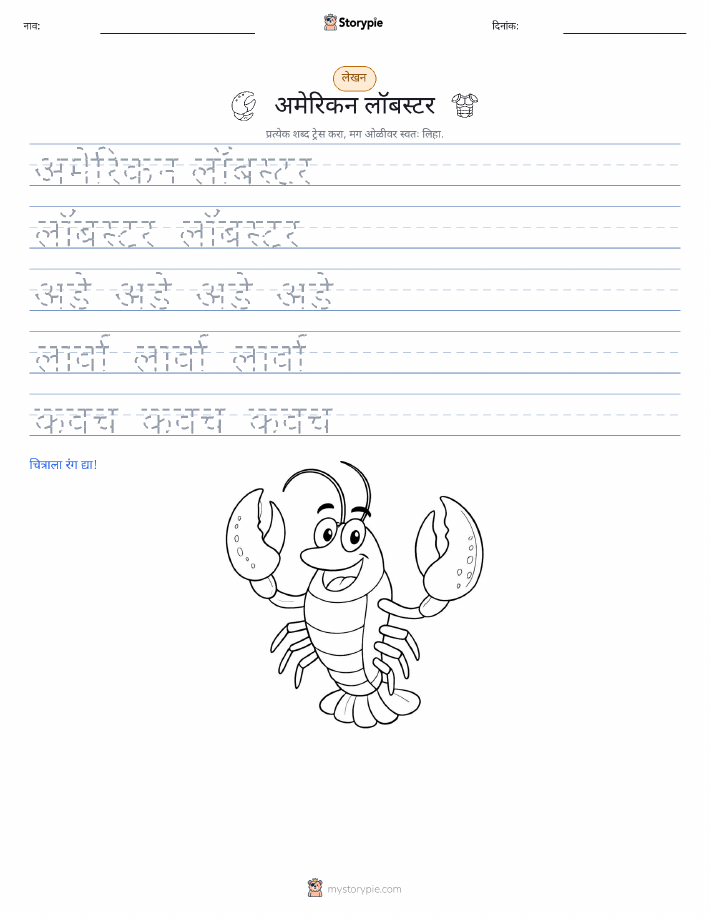 नाव:
Storypie
दिनांक:
लेखन
अमेरिकन लॉबस्टर
प्रत्येक शब्द ट्रेस करा, मग ओळीवर स्वतः लिहा.
अमेरिकन लॉबस्टर
लॉबस्टर लॉबस्टर
अंडे अंडे अंडे अंडे
लार्वा लार्वा लार्वा
कवच कवच कवच
चित्राला रंग द्या!
mystorypie.com